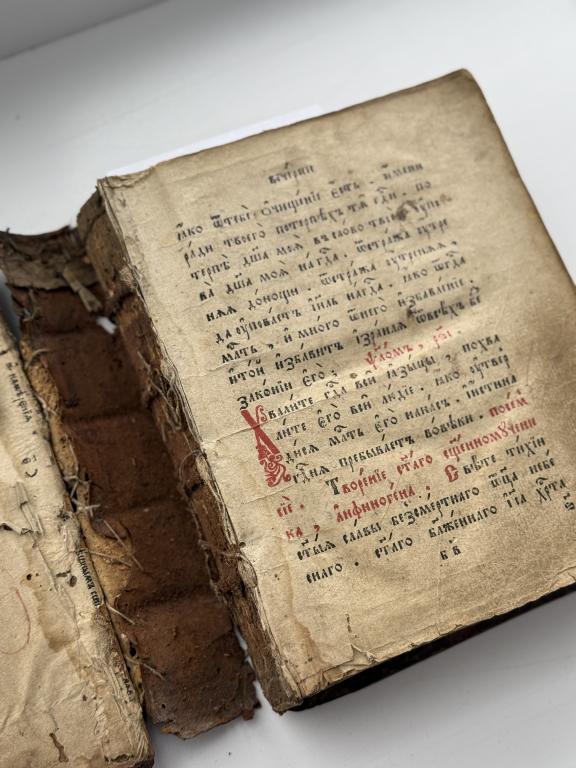 вече́рни
ꙗ҆́кѡ ѿ тебѐ ѡ҆чище́нїе є҆́сть . и҆́мени
ра́ди твоегѡ̀ потерпѣ́хъ тѧ гдⷭ҇и . по
терпѣ̀ дш҃а моѧ̀ въ сло́во твоѐ , ᲂу҆пова
ва̀ дш҃а моѧ̀ на гдⷭ҇а . ѿ стра́жа ᲂу҆́тре
нѧѧ до но́щи . ѿ стра́жа ᲂу҆́тренѧѧ ,
да ᲂу҆пова́етъ і҆и҃ль на гдⷭ҇а . ꙗ҆́кѡ ѿ гдⷭ҇а
ма́ть , и҆ мно́го ѿ негѡ̀ и҆збавле́нїе .
и҆ то́й и҆зба́витъ і҆и҃лѧ ѿ всѣ́хъ без
зако́нїи є҆гѡ̀ . ѱало́мъ , рѕ҃і .
Хвали́те гдⷭ҇а всѝ ꙗ҆зы́цы , похва
ли́те є҆гѡ̀ всѝ лю́дїе . ꙗ҆́кѡ ᲂу҆твер
ди́сѧ ма́ть є҆гѡ̀ на на́съ , и҆ и́стина
гдⷭ҇нѧ пребыва́етъ во вѣ́ки . пое́м
сїѐ . Творе́нїе ст҃а́го сщ҃енному́чени
ка , а҆нфиноге́на . Свѣ́те ти́хїи
ст҃ы́ѧ сла́вы безсме́ртнаго ѻ҆ц҃а̀ небе́
снаго . ст҃а́го бл҃же́ннаго і҆и҃са хрⷭ҇та̀
в҃ в҃